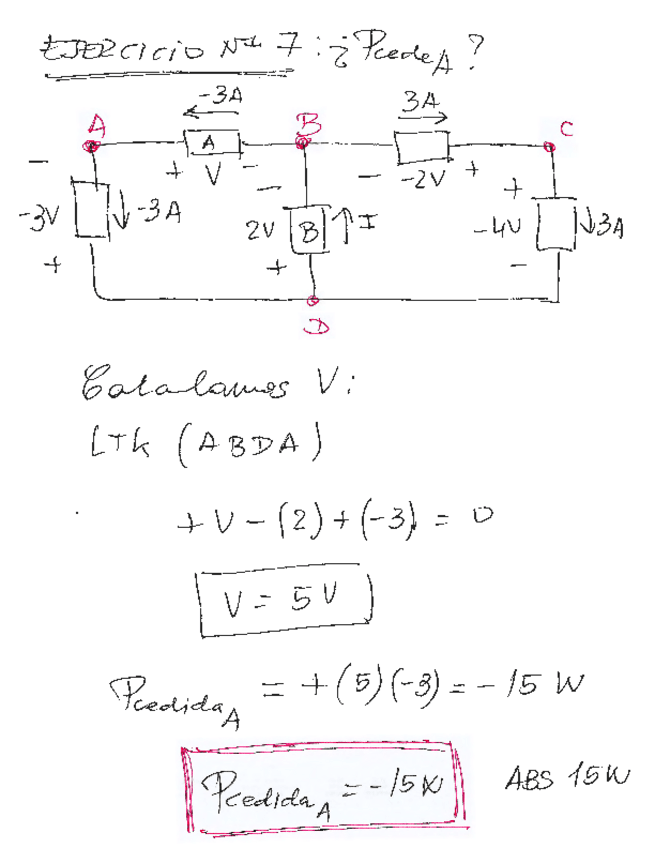 EJERCICIO Nº 7: ¿PcedeA?
-3A 3A
A B C
A
+ V - - -2V +
- -3V + ↓ -3A
- 2V + B ↑ I
+ -4V - ↓ 3A
D
Calculamos V:
LTK (ABDA)
+V - (2) + (-3) = 0
V = 5V
PcedidaA = +(5)(-3) = -15 W
PcedidaA = -15W ABS 15W